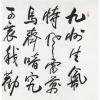 九州生氣
恃風雷萬
馬齊喑究
可哀我勸